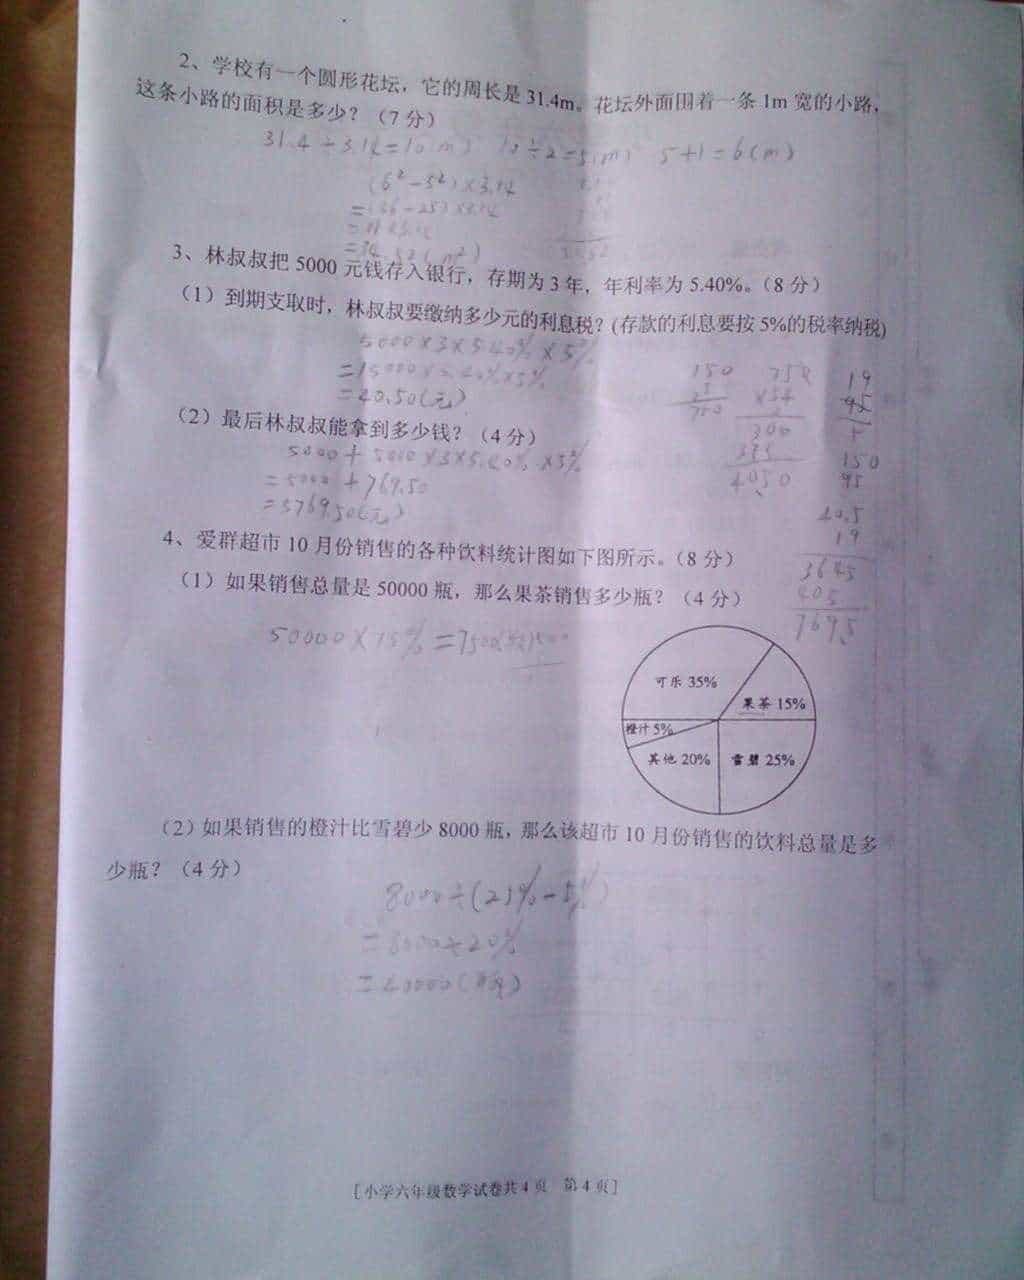 2、学校有一个圆形花坛，它的周长是31.4m。花坛外面围着一条1m宽的小路，
这条小路的面积是多少？（7分）
31.4÷3.14=10(m) 10÷2=5(m) 5+1=6(m)
(6²-5²)×3.14
=(36-25)×3.14
=11×3.14
=34.52(m²)
3、林叔叔把5000元钱存入银行，存期为3年，年利率为5.40%。（8分）
（1）到期支取时，林叔叔要缴纳多少元的利息税？(存款的利息要按5%的税率纳税)
5000×3×5.40%×5%
=15000×5.40%×5%
=40.50(元)
（2）最后林叔叔能拿到多少钱？（4分）
5000+5000×3×5.40%×5%
=5000+769.50
=5769.50(元)
150
750
19
×54
300
4050
150
95
40.5
19
3645
405
769.5
4、爱群超市10月份销售的各种饮料统计图如下图所示。（8分）
（1）如果销售总量是50000瓶，那么果茶销售多少瓶？（4分）
50000×15%=7500(瓶)
可乐 35%
果茶 15%
橙汁 5%
其他 20%
雪碧 25%
（2）如果销售的橙汁比雪碧少8000瓶，那么该超市10月份销售的饮料总量是多
少瓶？（4分）
8000÷(25%-5%)
=8000÷20%
=40000(瓶)
[小学六年级数学试卷共4页 第4页]